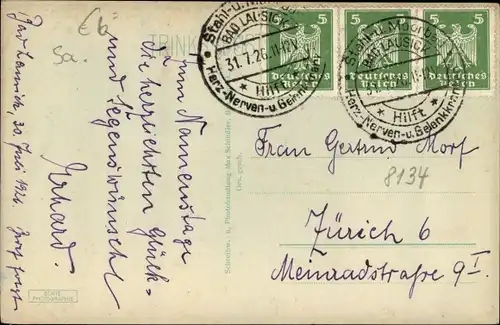 Eb
sa.
TRINK
Stahl- u. Moorbad
BAD LAUSICK
31.7.26.11-12V
Hilft
Herz-Nerven-u. Gelenkkranken
5
Deutsches Reich
5
Deutsches Reich
5
Deutsches Reich
Stahl- u. Moorbad
BAD LAUSICK
Hilft
Herz-Nerven-u. Gelenkkranken
Bad Lausick, 30. Juli 1926.
Zum Namenstage
die herzlichsten Glück-
und Segenswünsche
Erhard.
Brief folgt
ECHTE
PHOTOGRAPHIE
Schreibw. u. Photohandlung Max Schindler,
Ges. gesch.
Frau Gertrud Morf
8134
Zürich 6
Meinradstraße 9 I.